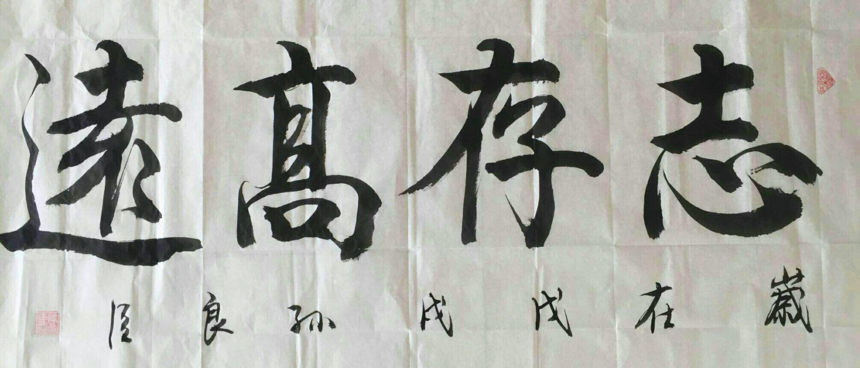 志存高遠
歲在戊戌孫良臣